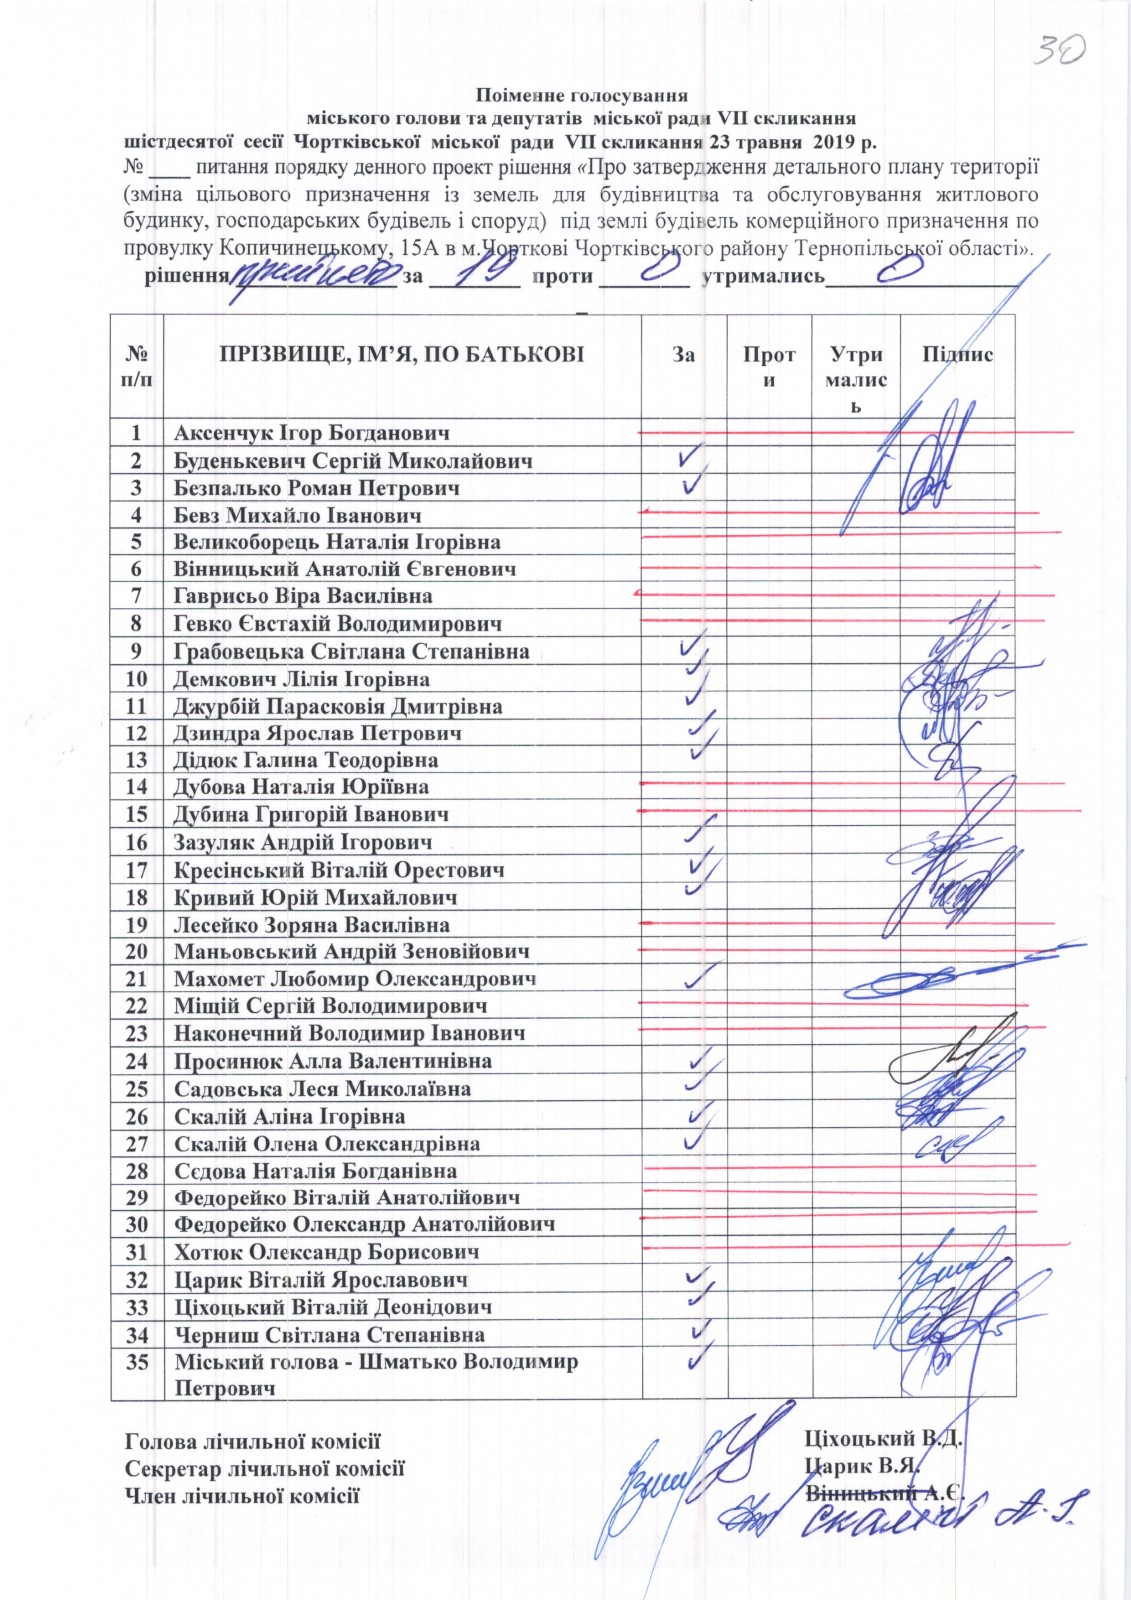 30
Поіменне голосування
міського голови та депутатів міської ради VII скликання
шістдесятої сесії Чортківської міської ради VII скликання 23 травня 2019 р.
№ ____ питання порядку денного проект рішення «Про затвердження детального плану території
(зміна цільового призначення із земель для будівництва та обслуговування житлового
будинку, господарських будівель і споруд) під землі будівель комерційного призначення по
провулку Копичинецькому, 15А в м.Чорткові Чортківського району Тернопільської області».
рішення прийнято за 19 проти 0 утримались 0
№ п/п ПРІЗВИЩЕ, ІМ’Я, ПО БАТЬКОВІ За Проти Утрималисъ Підпис
1 Аксенчук Ігор Богданович
2 Буденькевич Сергій Миколайович ✓
3 Безпалько Роман Петрович ✓
4 Бевз Михайло Іванович
5 Великоборець Наталія Ігорівна
6 Вінницький Анатолій Євгенович
7 Гаврисьо Віра Василівна
8 Гевко Євстахій Володимирович
9 Грабовецька Світлана Степанівна ✓
10 Демкович Лілія Ігорівна ✓
11 Джурбій Парасковія Дмитрівна ✓
12 Дзиндра Ярослав Петрович ✓
13 Дідюк Галина Теодорівна ✓
14 Дубова Наталія Юріївна
15 Дубина Григорій Іванович
16 Зазуляк Андрій Ігорович ✓
17 Кресінський Віталій Орестович ✓
18 Кривий Юрій Михайлович ✓
19 Лесейко Зоряна Василівна
20 Маньовський Андрій Зеновійович
21 Махомет Любомир Олександрович ✓
22 Міщій Сергій Володимирович
23 Наконечний Володимир Іванович
24 Просинюк Алла Валентинівна ✓
25 Садовська Леся Миколаївна ✓
26 Скалій Аліна Ігорівна ✓
27 Скалій Олена Олександрівна ✓
28 Сєдова Наталія Богданівна
29 Федорейко Віталій Анатолійович
30 Федорейко Олександр Анатолійович
31 Хотюк Олександр Борисович
32 Царик Віталій Ярославович ✓
33 Ціхоцький Віталій Деонідович ✓
34 Черниш Світлана Степанівна ✓
35 Міський голова - Шматько Володимир ✓
Петрович
Голова лічильної комісії Ціхоцький В.Д.
Секретар лічильної комісії Царик В.Я.
Член лічильної комісії Віницький А.Є.
Скалій А.І.